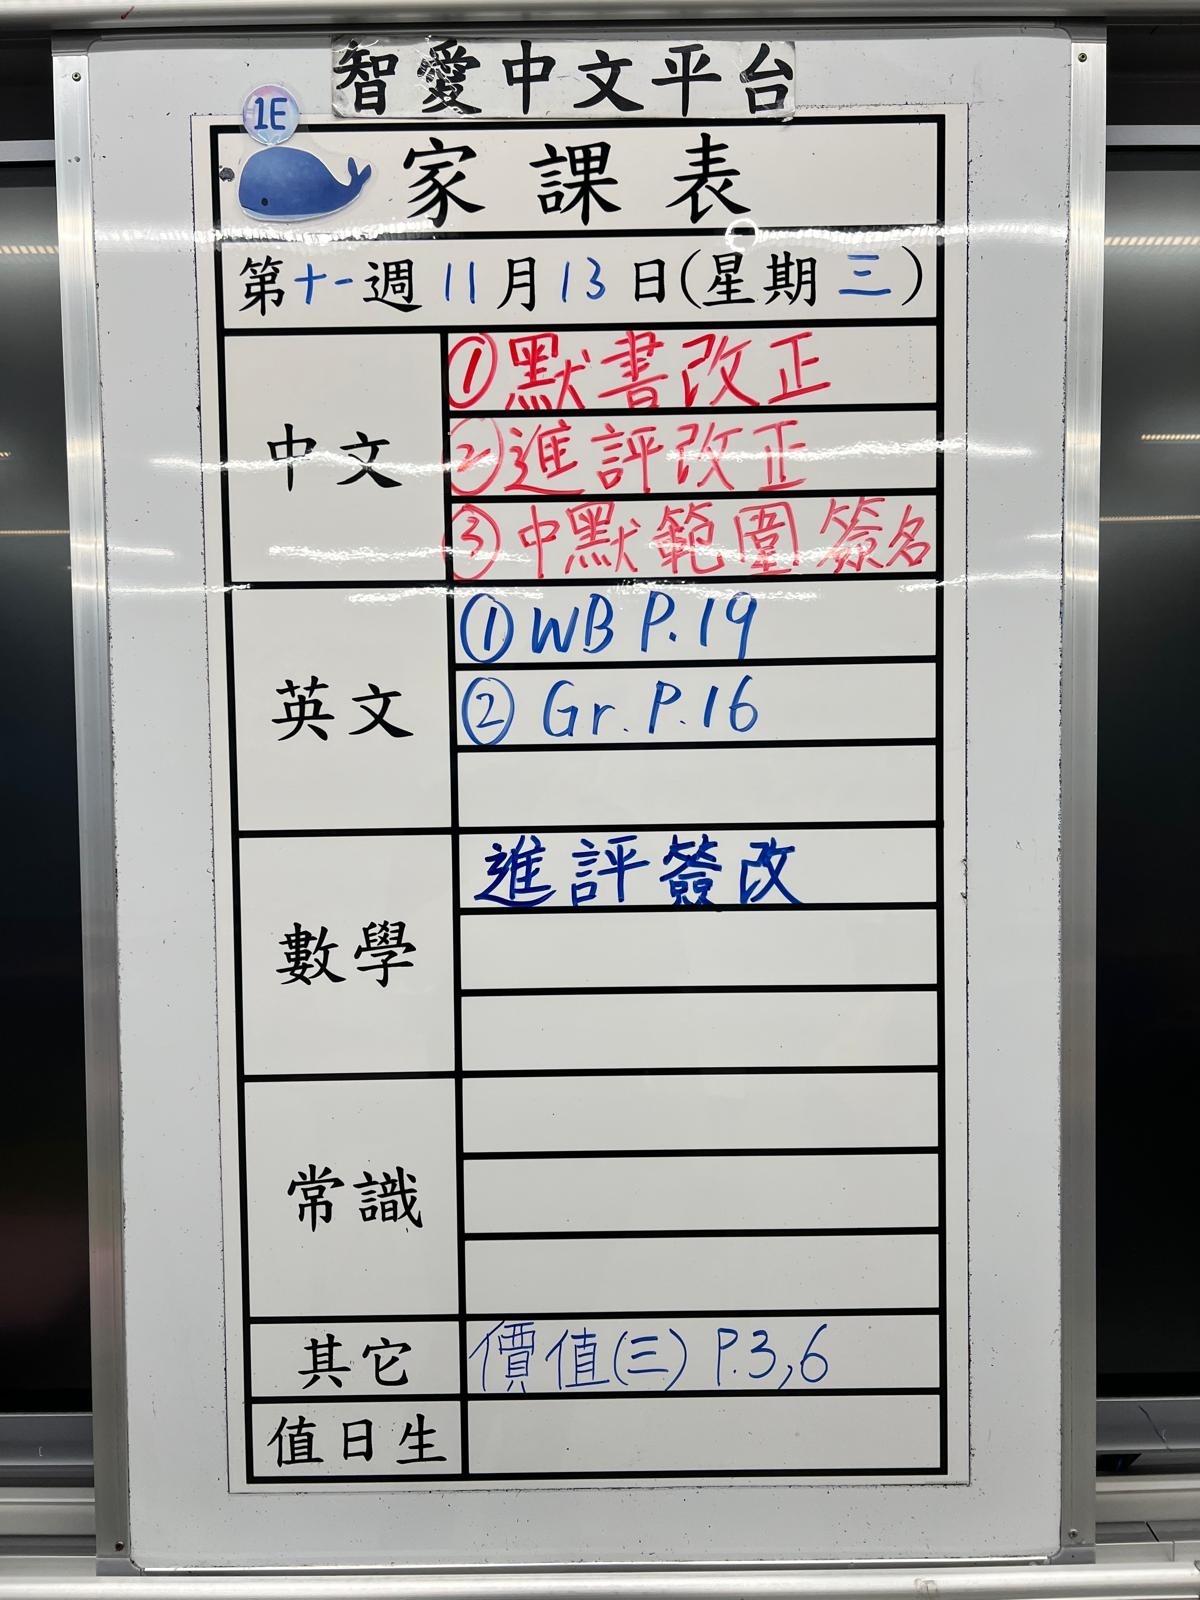 智愛中文平台
1E
家課表
第十一週 11月13日(星期三)
中文
①默書改正
②進評改正
③中默範圍簽名
英文
①WB P.19
② Gr. P.16
數學
進評簽改
常識
其它
價值(三) P.3,6
值日生